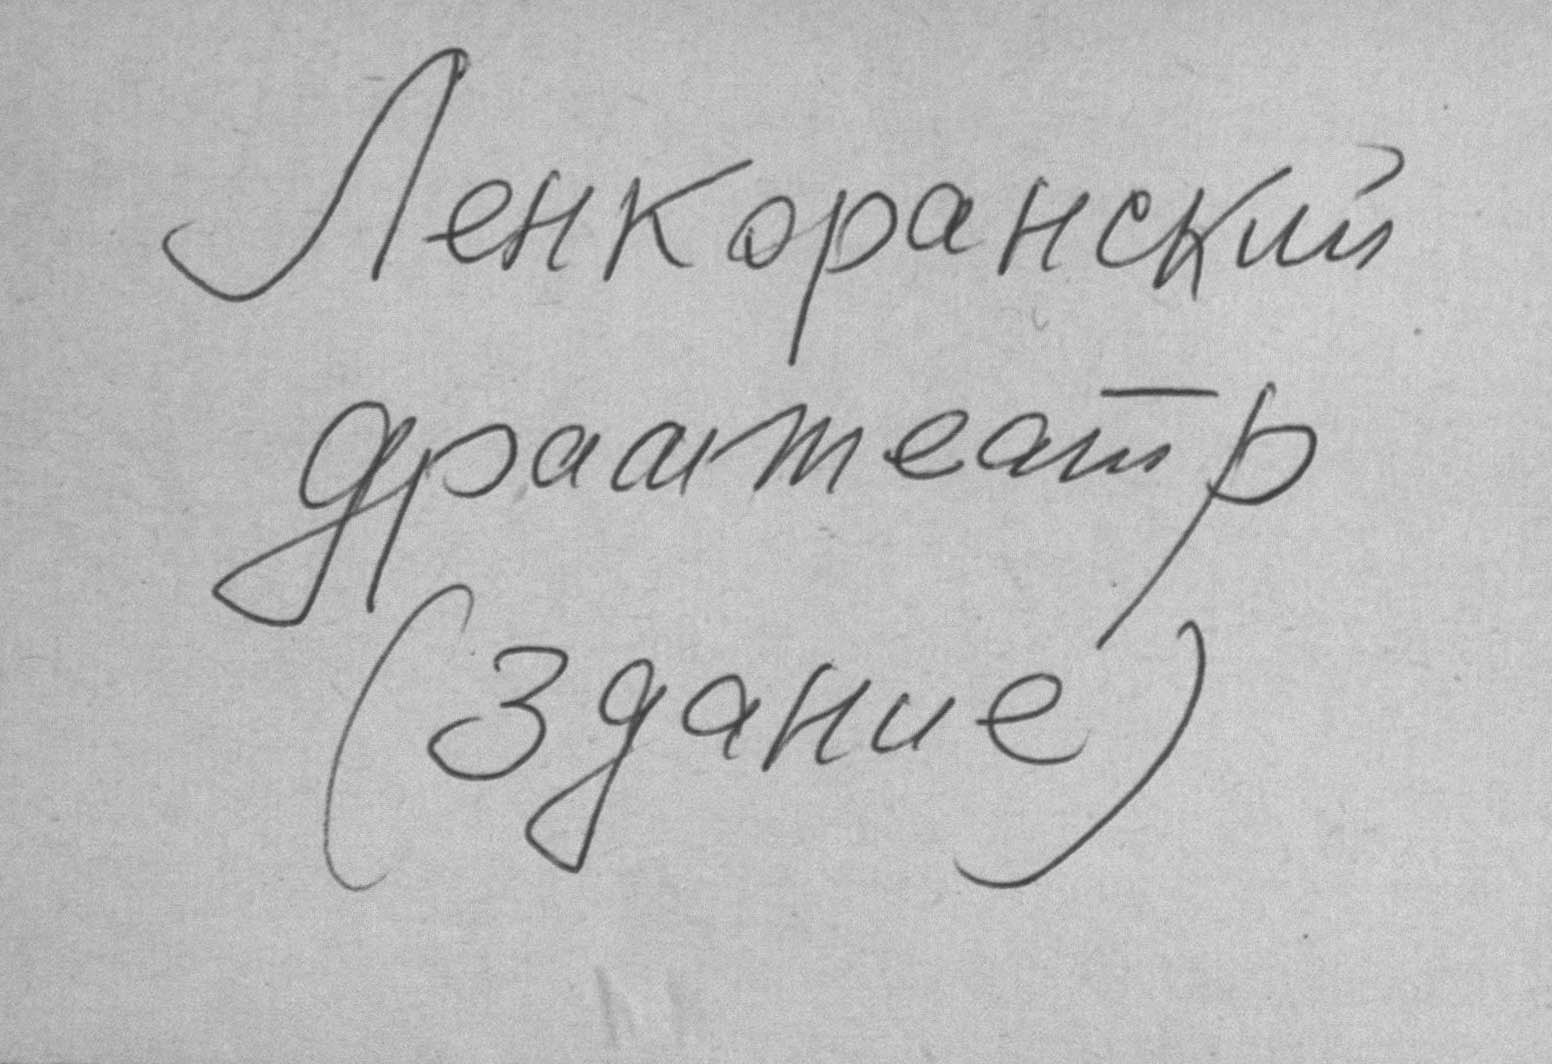 Ленкоранский
драмтеатр
(здание)